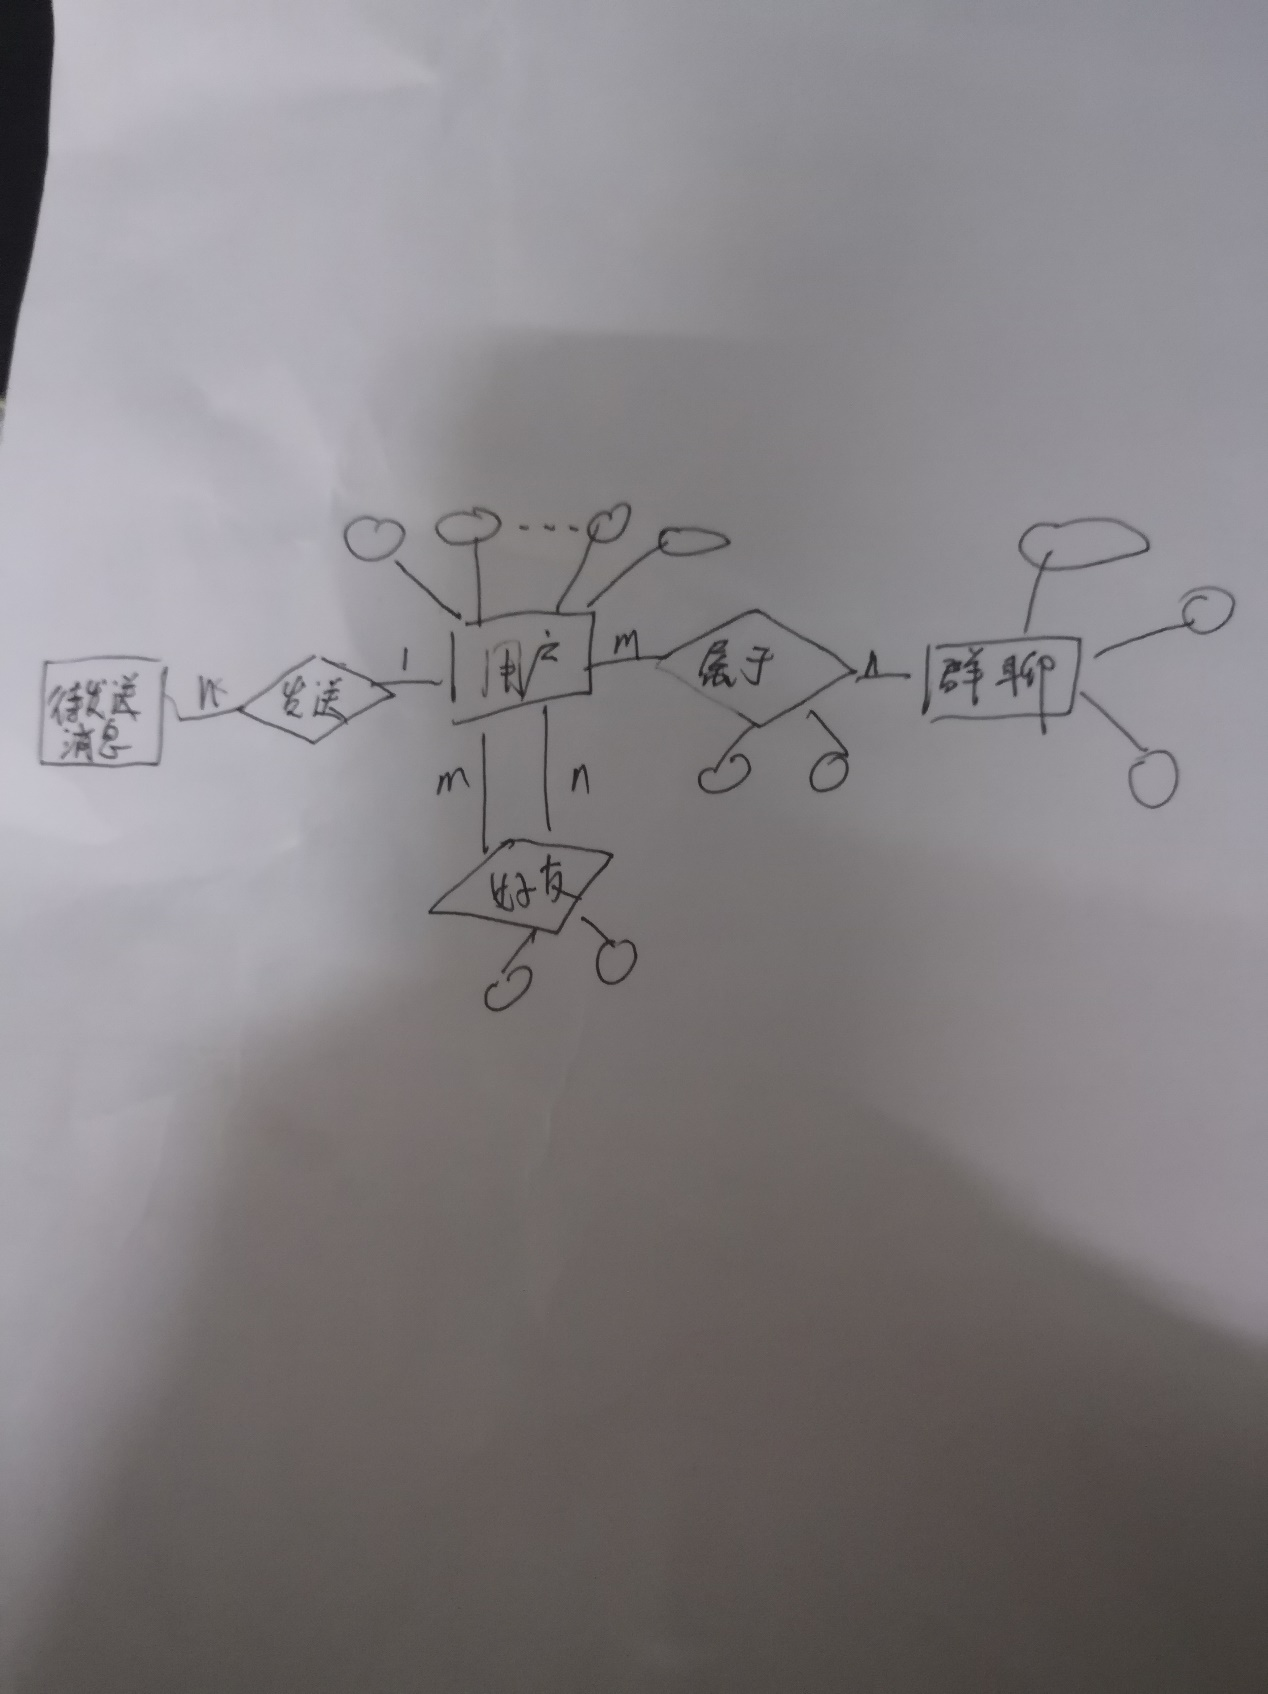 待发送
消息
n
发送
1
用户
m
属于
n
群聊
m
n
好友